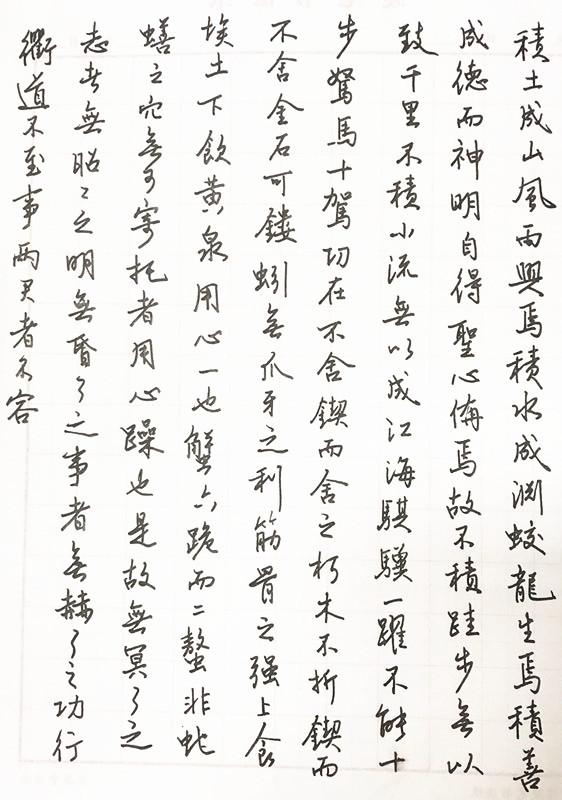 積土成山風雨興焉積水成淵蛟龍生焉積善
成德而神明自得聖心備焉故不積跬步無以
致千里不積小流無以成江海騏驥一躍不能十
步駑馬十駕功在不舍鍥而舍之朽木不折鍥而
不舍金石可鏤蚓無爪牙之利筋骨之强上食
埃土下飲黄泉用心一也蟹六跪而二螯非虵
蟮之穴無可寄托者用心躁也是故無冥冥之
志者無昭昭之明無昏昏之事者無赫赫之功行
衢道不至事兩君者不容